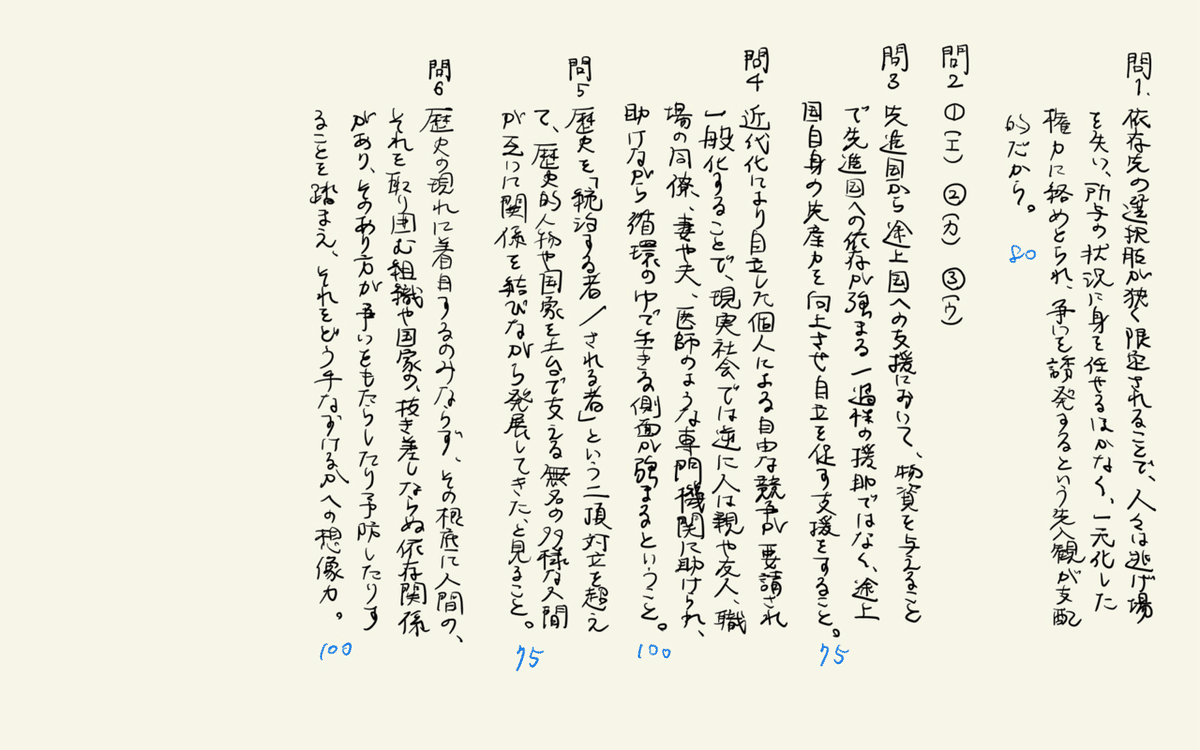 問1. 依存先の選択肢が狭く限定されることで、人々は逃げ場
を失い、所与の状況に身を任せるほかなく、一元化した
権力に絡めとられ、争いを誘発するという先入観が支配
的だから。
80
問2 ①(エ) ②(カ) ③(ウ)
問3 先進国から途上国への支援において、物資を与えること
で先進国への依存が強まる一過性の援助ではなく、途上
国自身の生産力を向上させ自立を促す支援をすること。
75
問4 近代化により自立した個人による自由な競争が要請され
一般化することで、現実社会では逆に人は親や友人、職
場の同僚、妻や夫、医師のような専門機関に助けられ、
助けながら循環の中で生きる側面が強まるということ。
100
問5 歴史を「統治する者/される者」という二項対立を超え
て、歴史的人物や国家を土台で支える無名の多様な人間
が互いに関係を結びながら発展してきた、と見ること。
75
問6 歴史の現れに着目するのみならず、その根底に人間の、
それを取り囲む組織や国家の、抜き差しならぬ依存関係
があり、そのあり方が争いをもたらしたり予防したりす
ることを踏まえ、それをどう手なずけるかへの想像力。
100